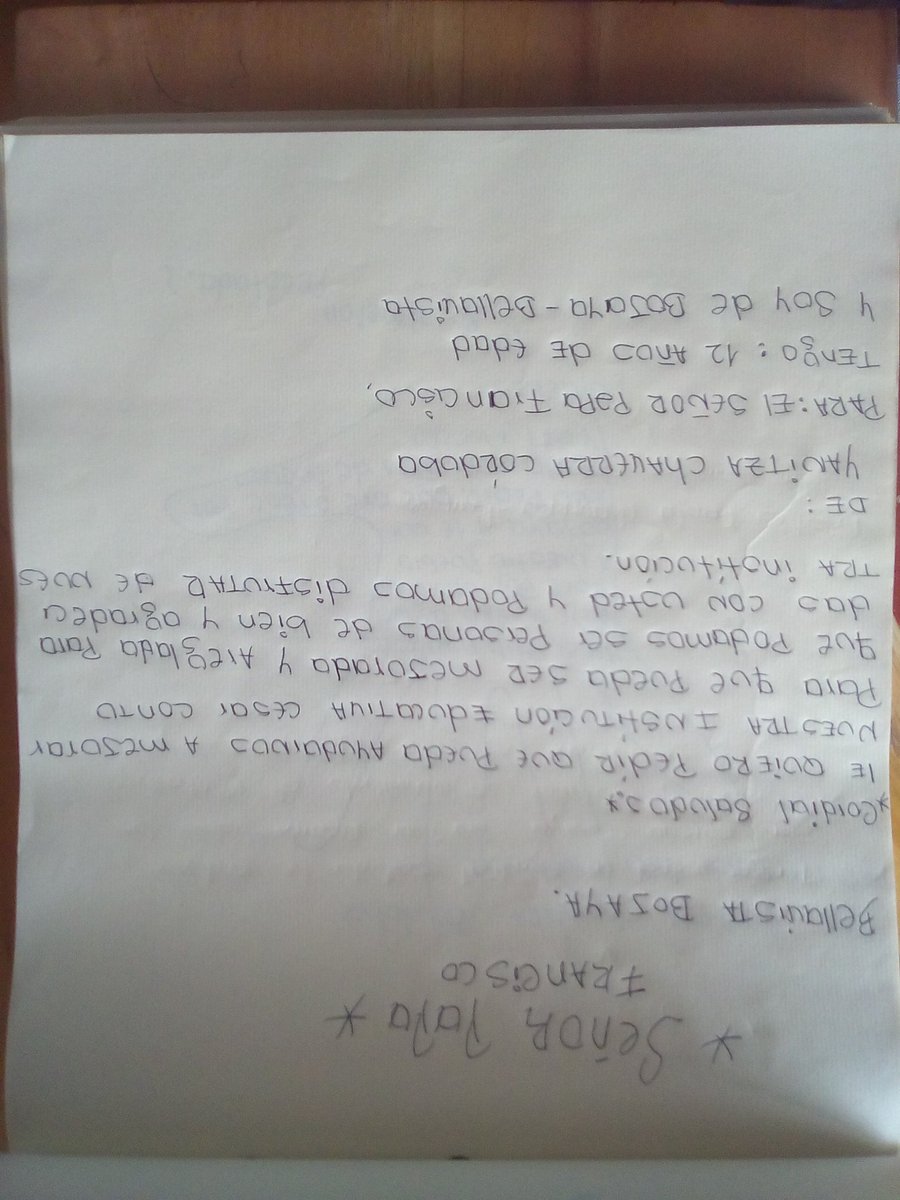 * SEÑOR PAPA *
FRANCISCO
Bellavista BOJAYA.
*Cordial Saludos,*
lE QUIERO PEDIR QUE PUEDA AYUDARNOS A MEJORAR
NUESTRA INStitución EducATIVA CESAR CONTO
Para que Pueda SER MEJORADA y AREglada Para
que Podamos ser Personas de bien y agradeci
das con usted y Podamos disfrutar de NUES
TRA institución.
DE:
YANITZA CHAVERRA CÓRdoba
PARA: El SEÑOR PaPa Francisco,
TENgo: 12 AÑos dE Edad
y soy de BOJAYA - Bellavista